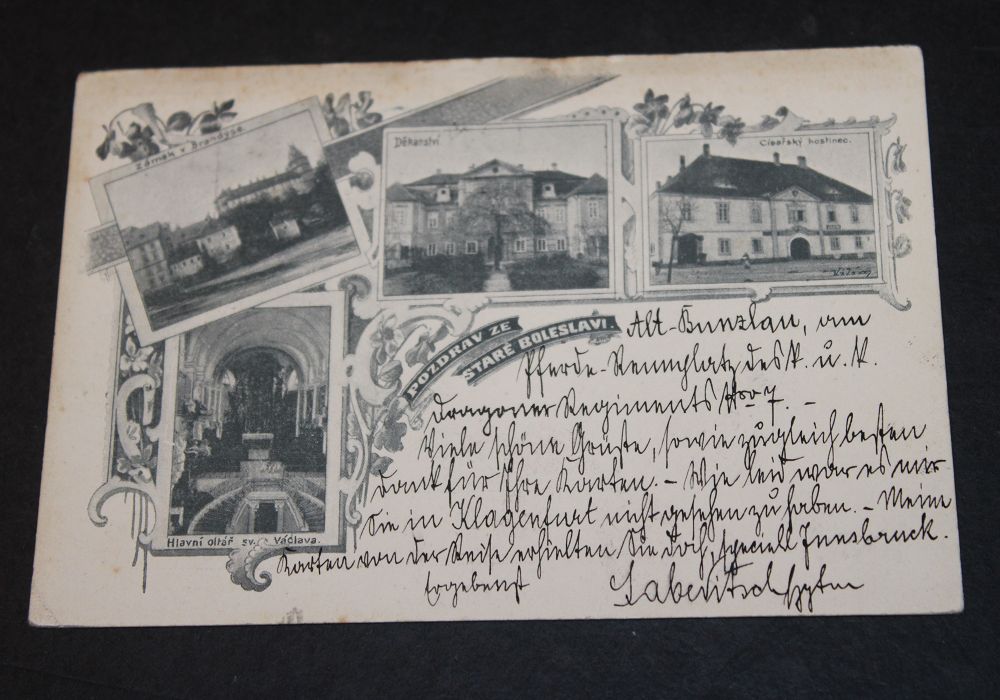 Zámek v Brandýse.
Děkanství
Císařský hostinec.
Hlavní oltář sv. Václava.
POZDRAV ZE
STARÉ BOLESLAVI.
Alt-Bunzlau, am
Pferde-Rennplatz des k. u. k.
Dragoner Regiments Nro 7. –
Viele schöne Grüße, sowie zugleich besten
Dank für Ihre Karten. – Wie leid war es mir
Sie in Klagenfurt nicht gesehen zu haben. – Meine
Karten von der Reise erhielten Sie doch, speciell Innsbruck.
Ergebenst